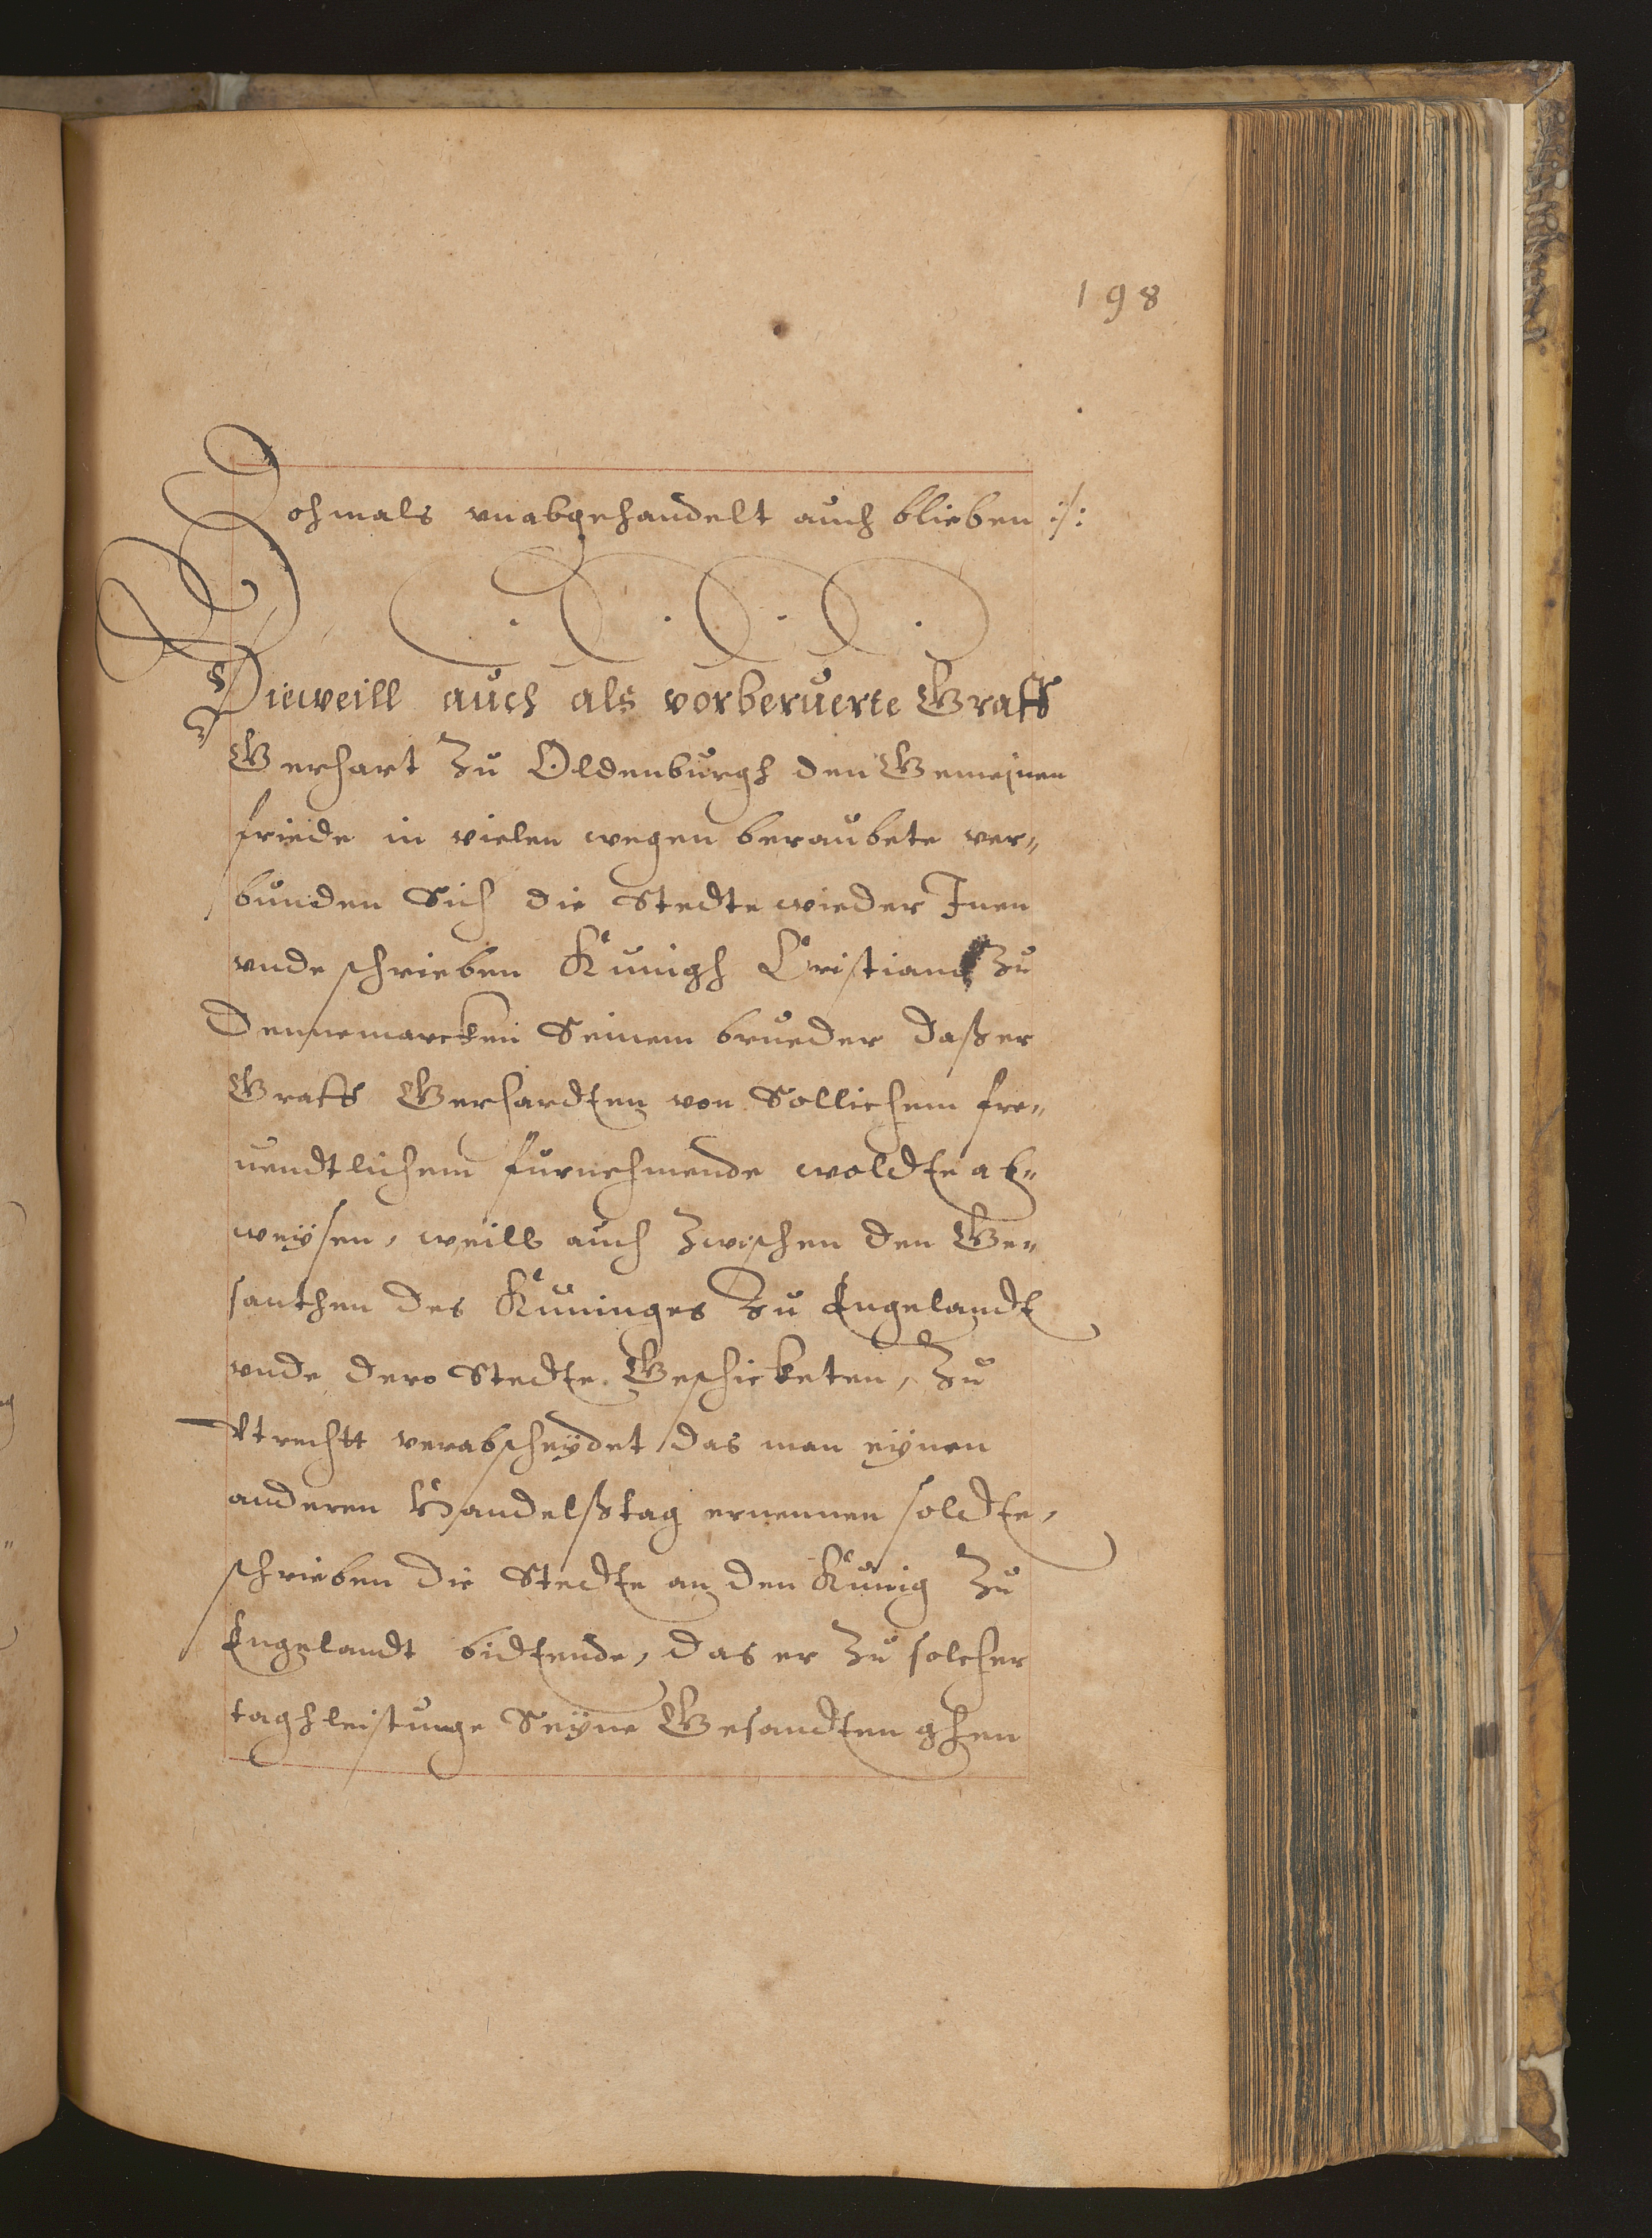 198
Dohmals vnabgehandelt auch blieben :/:
Dieweill auch als vorberuerte Graff
Gerhart zu Oldenburgh den Gemeinen
friede in vielen wegen beraubete ver„
bunden Sich die Stedte wieder Inen
vnde schrieben Künigh Cristian zu
Dennemarcken Seinem brueder daß er
Graff Gerhardten von Sollichem fre„
uendtlichem furnehmende woldte ab„
weÿsen, weill auch zwischen den Ge„
santhen des Küninges zu Engelandt
vnde dero Stedte Geschickten, zu
Vtrechtt verabscheÿdet das man eÿnen
anderen Handelßtag ernennen soldte,
schrieben die Stedte an den Künig zu
Engelandt bidtende, das er zu solcher
taghleistunge Seÿne Gesandten ghen